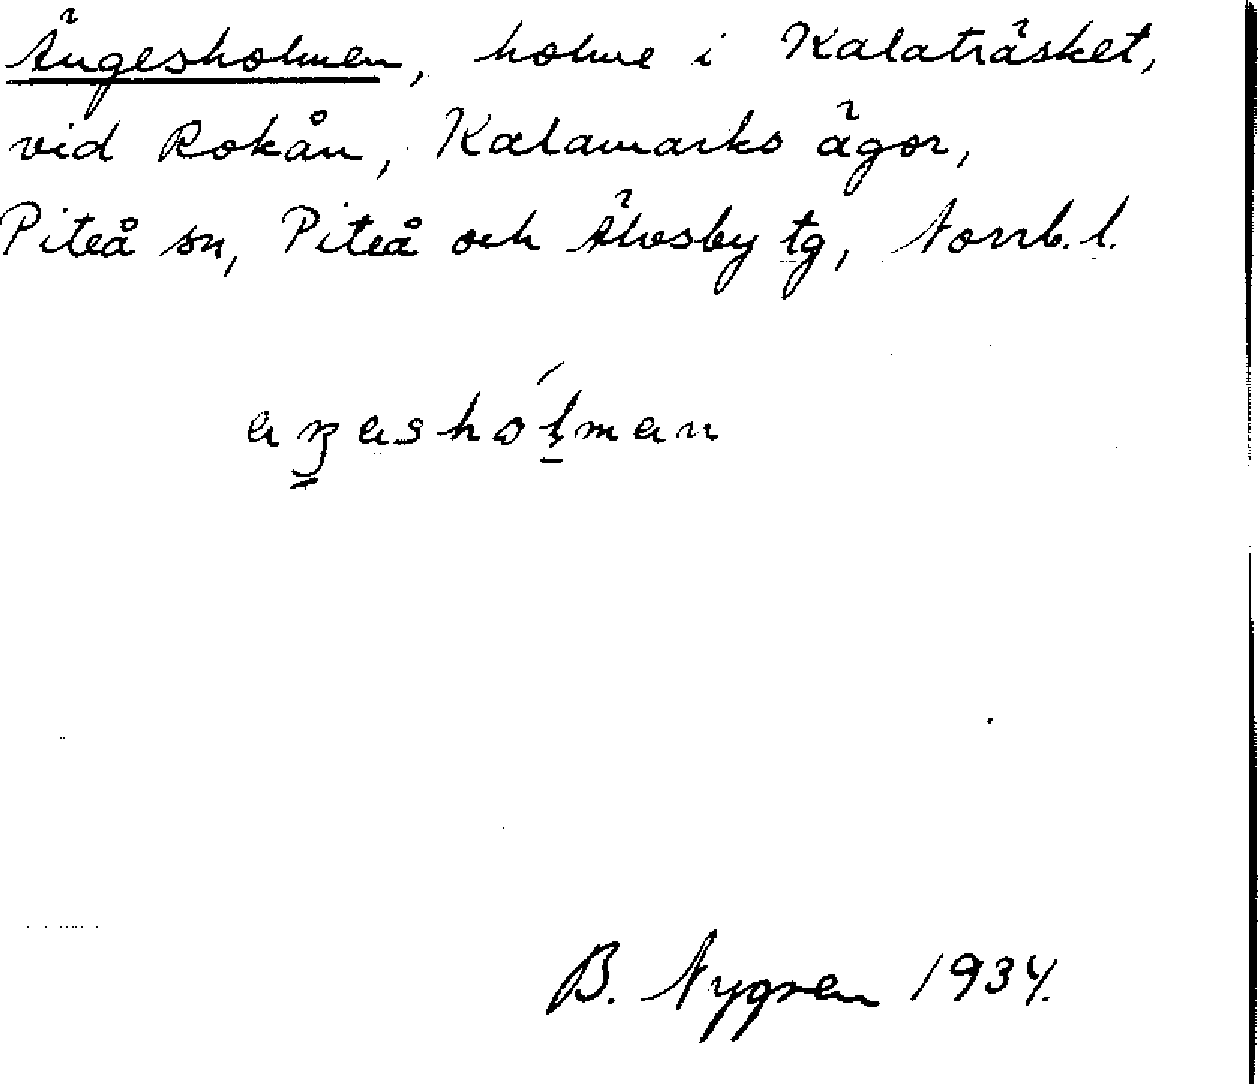 Ängesholmen, holme i Kalaträsket,
vid Rokån, Kalamarks ägor,
Piteå sn, Piteå och Älvsby tg, Norrb. l.
B. Nygren 1934.